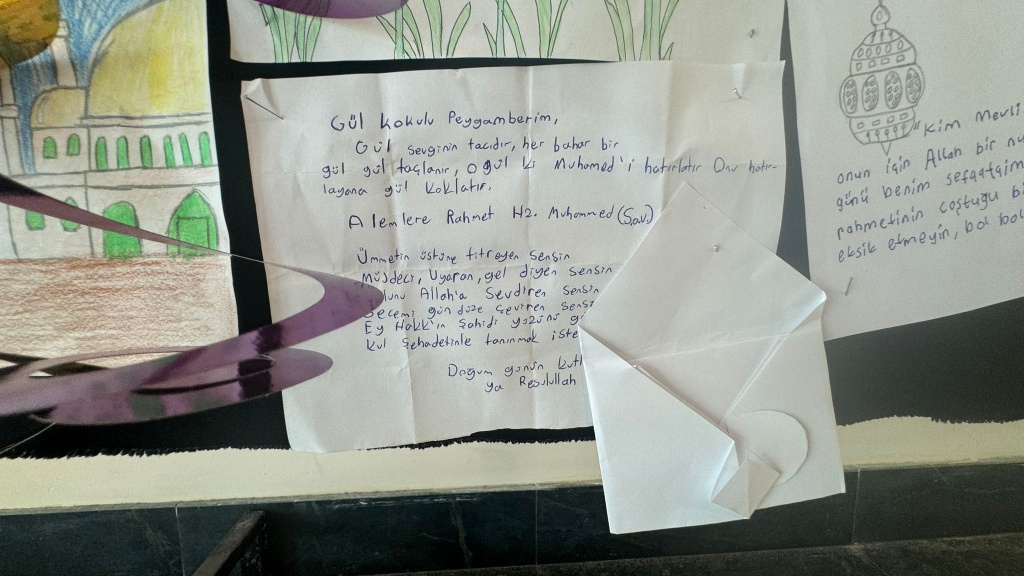 Gül kokulu Peygamberim,
Gül sevginin tacıdır, her bahar bir
gül gül taçlanır, o gül ki Muhamed'i hatırlatır Onu hatır-
layana gül koklatır.
Alemlere Rahmet Hz. Muhammed (S.a.v.)
Ümmetin üstüne titreyen sensin
Müjdeci, Uyaran, gel diyen sensin
Allah'a Sevdiren sensin
Gecemi gündüze çeviren sensin
Ey Hakk'ın Şahidi yüzünü
Kul Şehadetinle tanınmak
Doğum günün
ya Resulullah
"Kim Mevli
onun için Allah bir
günü benim şefaatçim
rahmetinin coştuğu
eksik etmeyin, bol